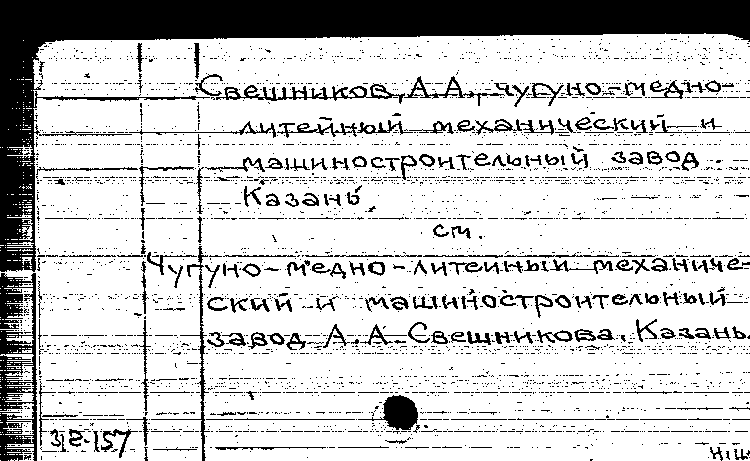 Свешников, А.А., чугуно-медно-
литейный механический и
машиностроительный завод.
Казань.
см.
Чугуно-медно-литейный механиче-
ский и машиностроительный
завод А.А. Свешникова. Казань.